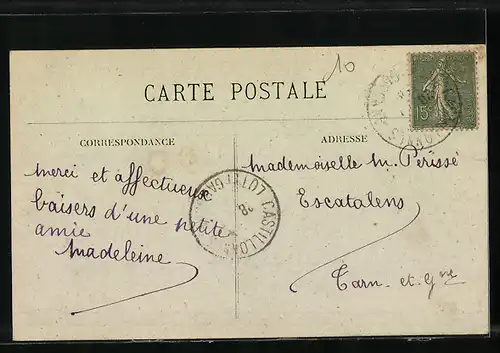 10
CARTE POSTALE
CORRESPONDANCE
ADRESSE
Merci et affectueux
baisers d'une petite
amie
Madeleine
Mademoiselle M. Périssé
Escatalens
Tarn-et-Gne
15
LOT ET GAR
28